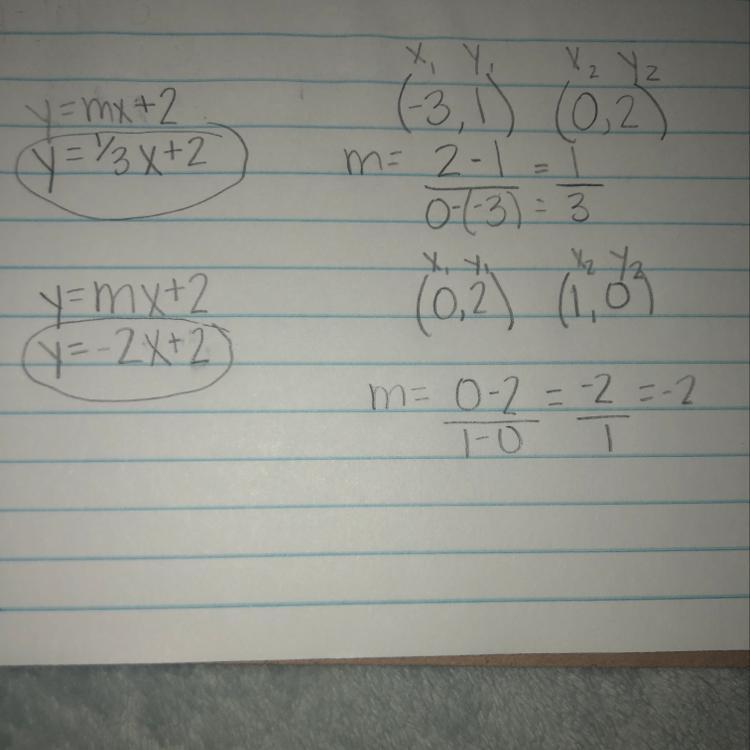 y=mx+2
y=1/3x+2
x₁ y₁ x₂ y₂
(-3,1) (0,2)
m= 2-1 = 1
0-(-3) = 3
y=mx+2
y=-2x+2
x₁ y₁ x₂ y₂
(0,2) (1,0)
m= 0-2 = -2 =-2
1-0 1